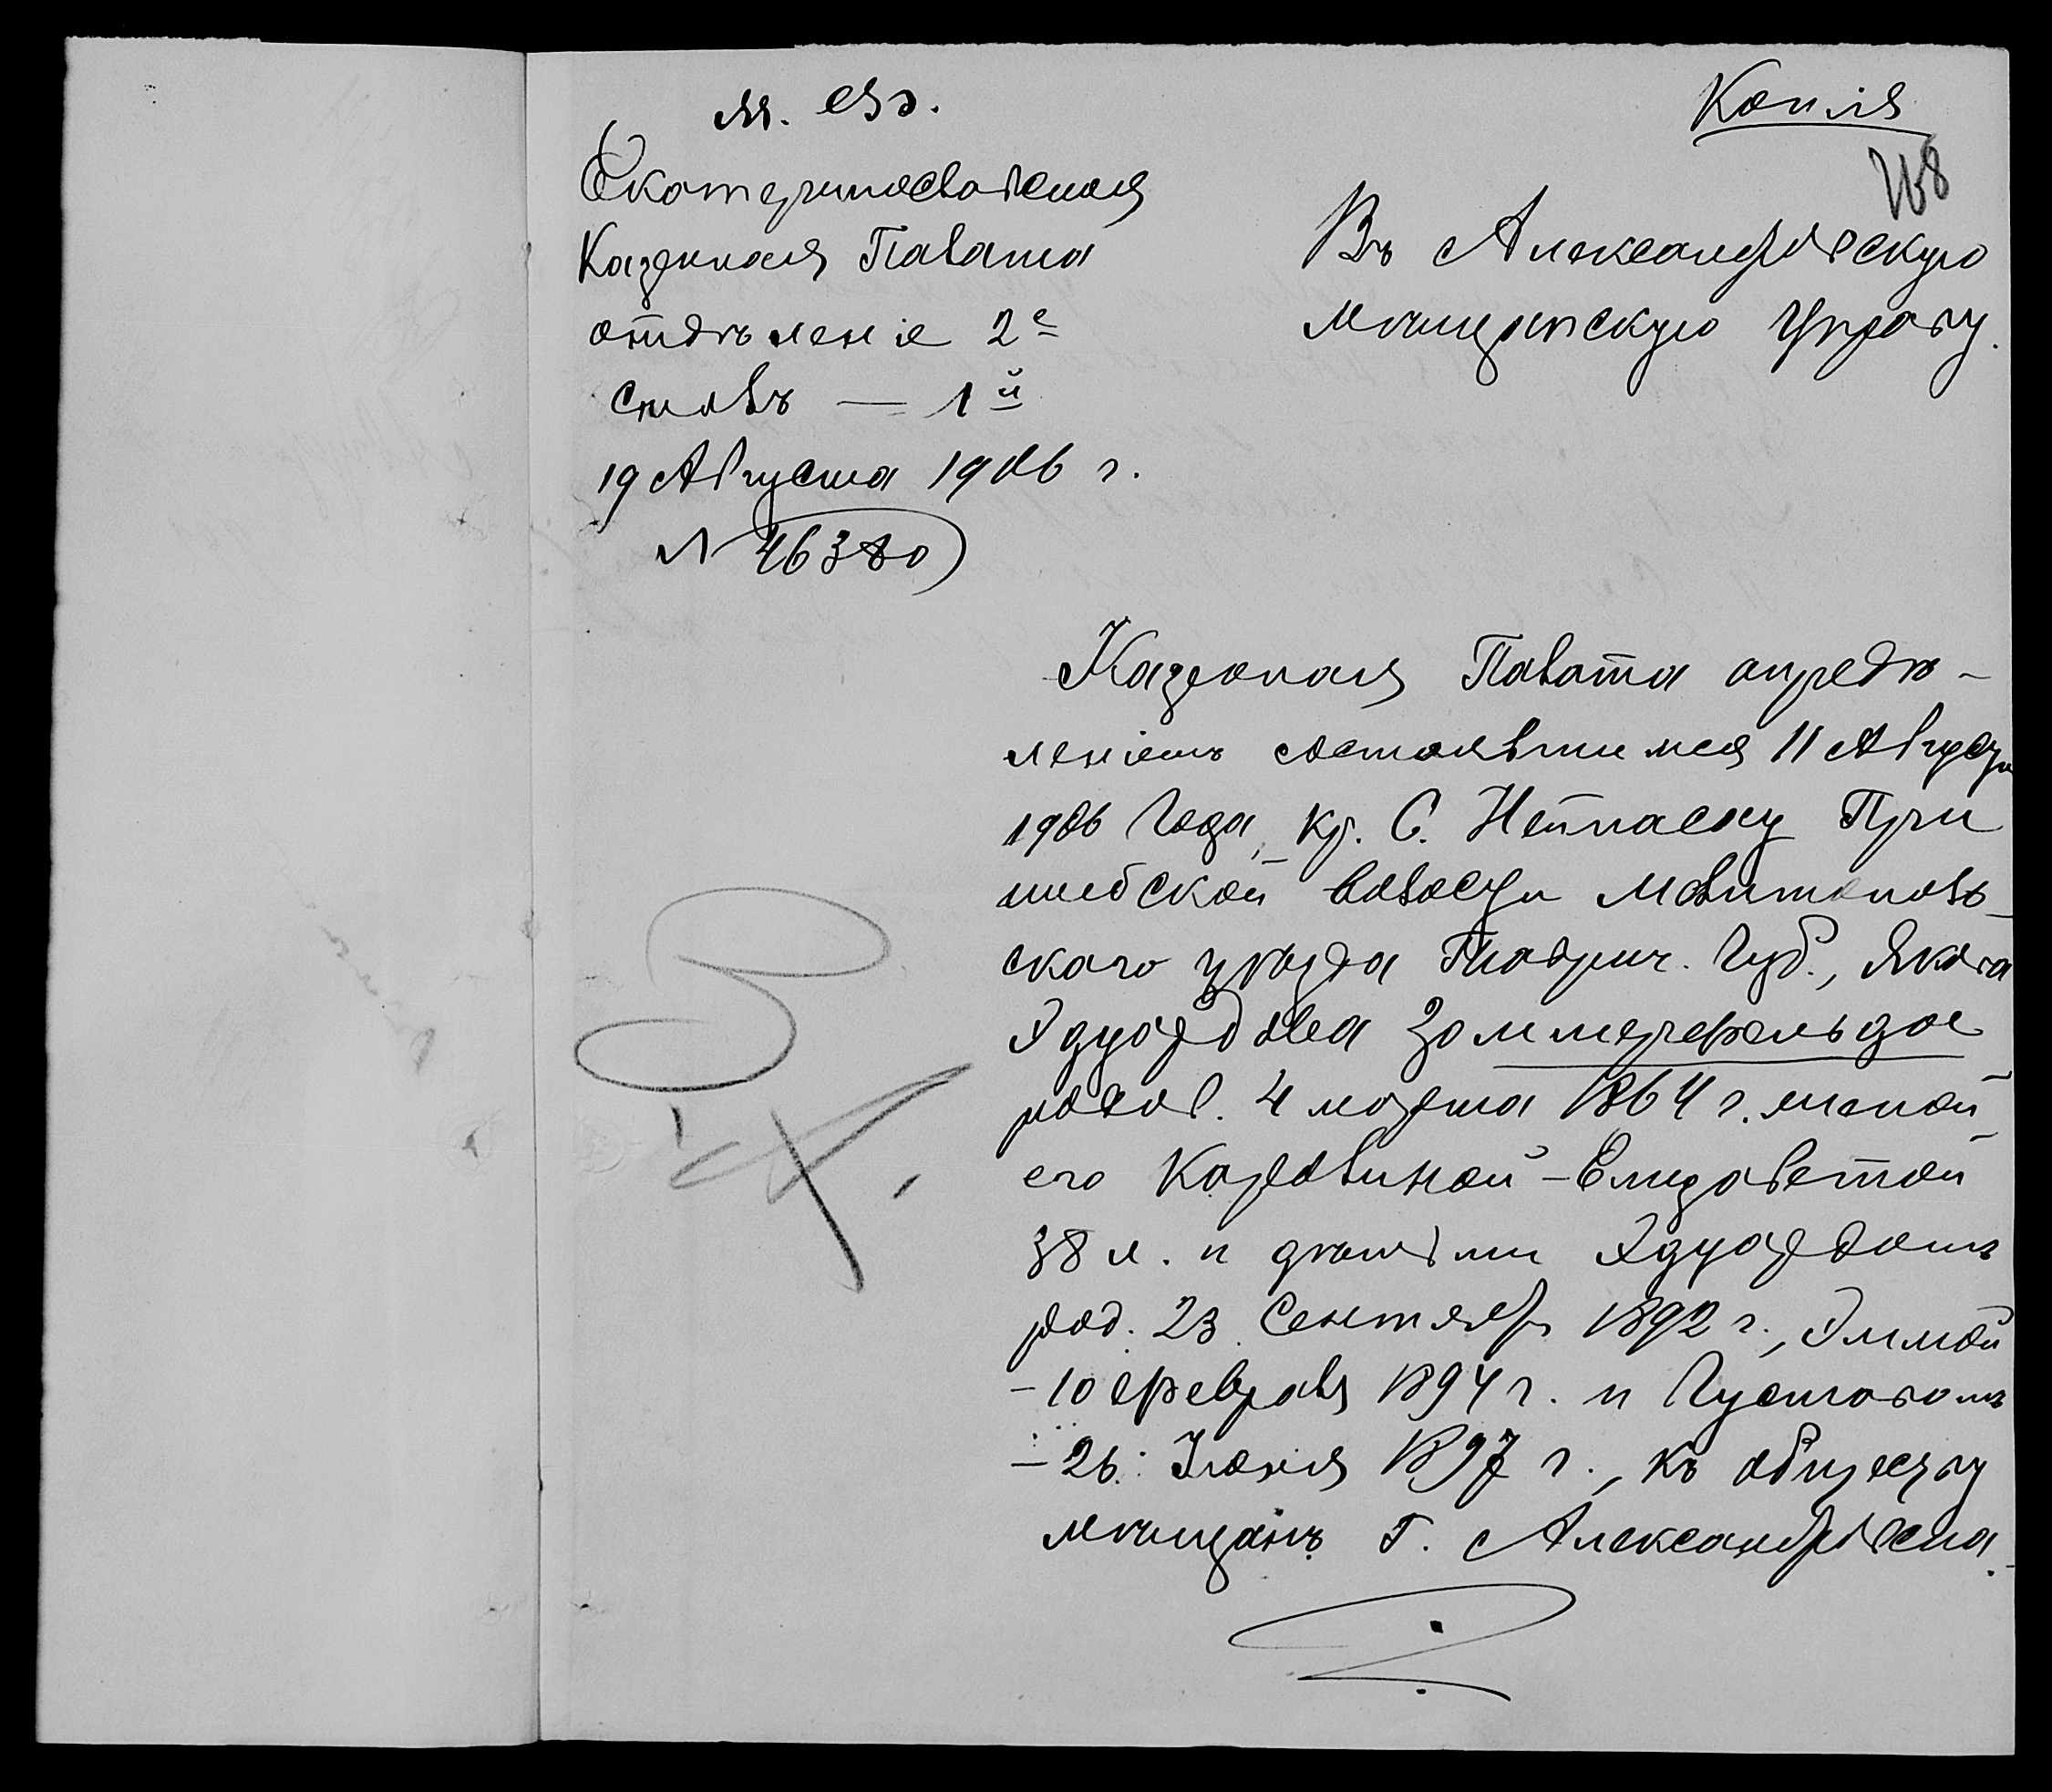 М. вз.
Копія
Екатеринославская
Казенная Палата
отдѣленіе 2е
столъ — 1й
19 Августа 1906 г.
№ 46380
Въ Александровскую
мѣщанскую Управу.
Казенная Палата опредѣ-
леніемъ состоявшимся 11 Августа
1906 года, кр. С. Нейнасау При
шибской волости Мелитополь-
скаго уѣзда Таврич. губ., Якова
Эдуардова Зоммерфельдъ
родов. 4 марта 1864 г. женой
его Каролиной-Елизаветой
38 л. и дѣтьми Эдуардомъ
род. 23 Сентябр 1892 г., Эммой
- 10 февраля 1894 г. и Густавомъ
- 26 Іюня 1897 г., къ обществу
мѣщанъ г. Александровска.